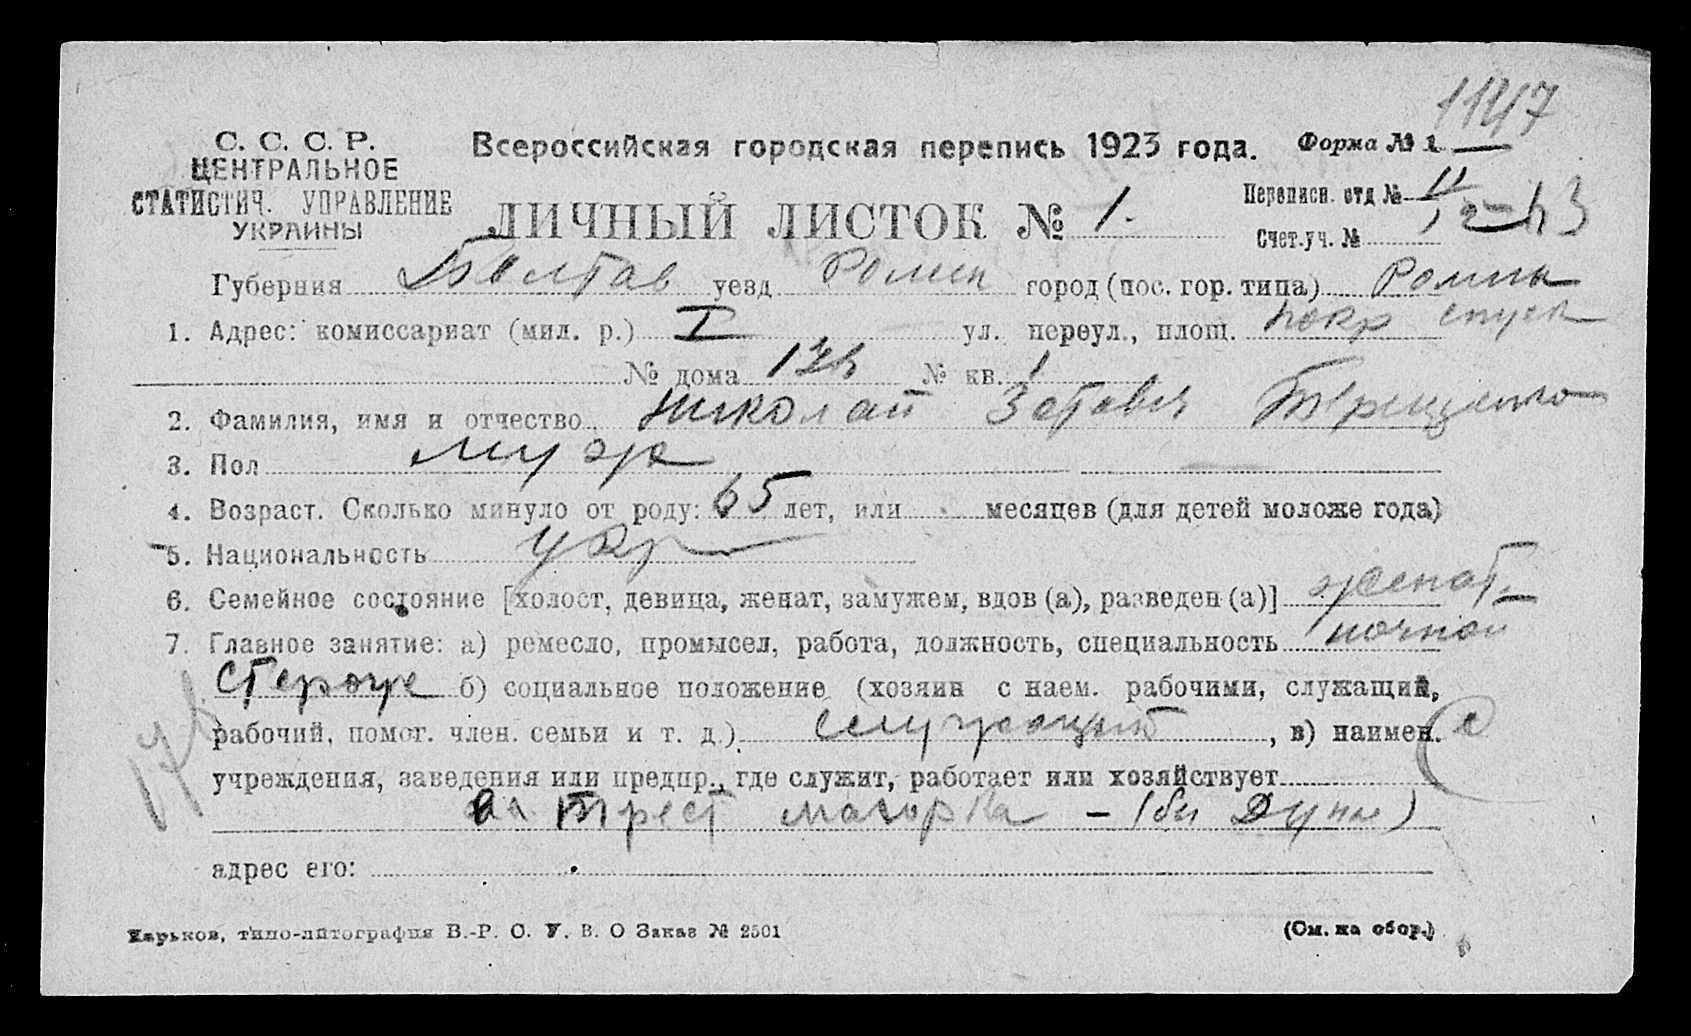 1147
С. С. С. Р.
ЦЕНТРАЛЬНОЕ
СТАТИСТИЧ. УПРАВЛЕНИЕ
УКРАИНЫ
Всероссийская городская перепись 1923 года.
Форма № 1
ЛИЧНЫЙ ЛИСТОК № 1.
Переписн. отд № II
Счет.уч. №
Губерния Полтав уезд Ромен город (пос. гор. типа) Ромны
1. Адрес: комиссариат (мил. р.) I ул. переул., площ. покр спуск
№ дома № кв. 1
2. Фамилия, имя и отчество Николай Трещенко
3. Пол муж
4. Возраст. Сколько минуло от роду: 65 лет, или месяцев (для детей моложе года)
5. Национальность укр
6. Семейное состояние [холост, девица, женат, замужем, вдов (а), разведен (а)] женат
7. Главное занятие: а) ремесло, промысел, работа, должность, специальность ночной
сторож б) социальное положение (хозяин с наем. рабочими, служащий,
рабочий, помог. член. семьи и т. д.) служащий, в) наимен.
учреждения, заведения или предпр., где служит, работает или хозяйствует
трест махорка
адрес его:
Харьков, типо-литография В.-Р. О. У. В. О Заказ № 2501
(См. на обор.)